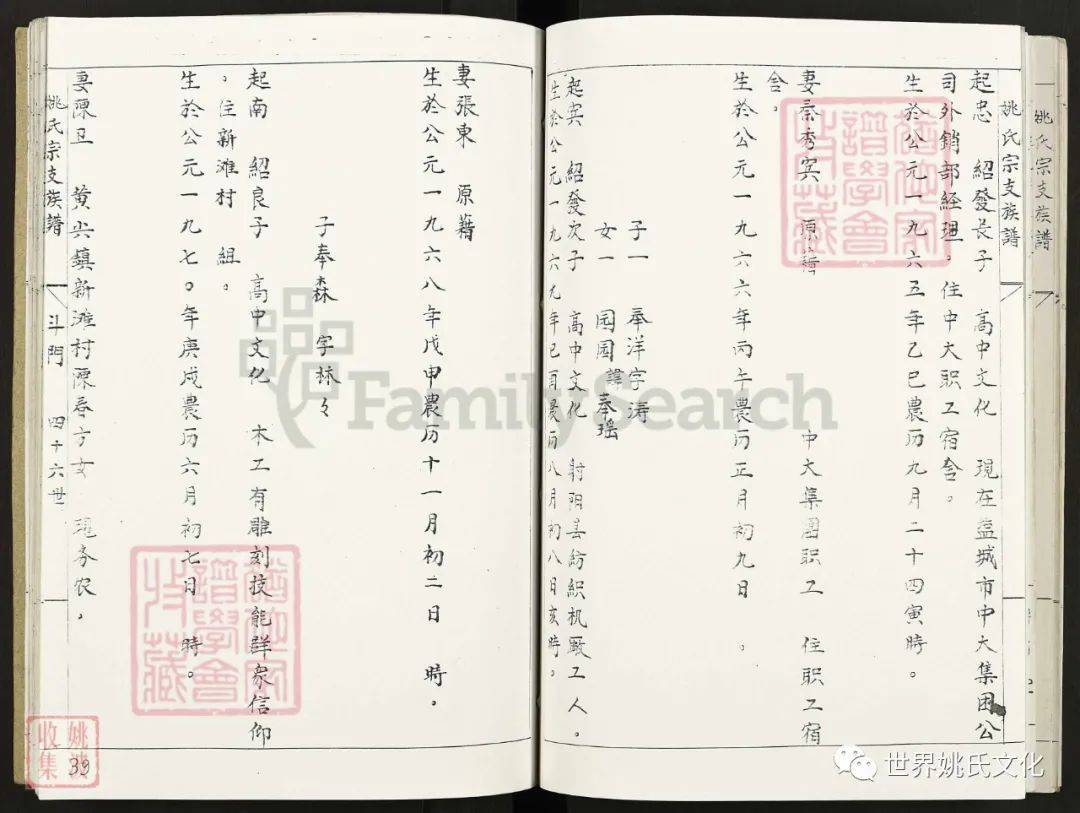 姚氏宗支族譜
姚氏宗支族譜
起忠 紹發長子 高中文化 現在盐城市中大集团公
司外銷部経理。住中大职工宿舍。
生於公元一九六五年乙巳農历九月二十四寅時。
妻秦秀宾 原籍 中大集團职工 住职工宿
舍。
生於公元一九六六年丙午農历正月初九日 。
子一 奉洋字涛
女一 园园諱奉瑶
起宾 紹發次子 高中文化 射阳县紡織机厰工人。
生於公元一九六九年己酉農历八月初八日亥時。
妻張東 原籍
生於公元一九六八年戊申農历十一月初二日 時。
子奉森 字林々
起南 紹良子 高中文化 木工有雕刻技能群衆信仰
。住新滩村 組。
生於公元一九七〇年庚戌農历六月初七日 時。
妻陳丑 黄尖鎮新滩村陳春方女 現务农。
姚氏宗支族譜 斗門 四十六世
39
譜學會
收藏
譜學會
收藏
姚波
收集
FamilySearch
世界姚氏文化